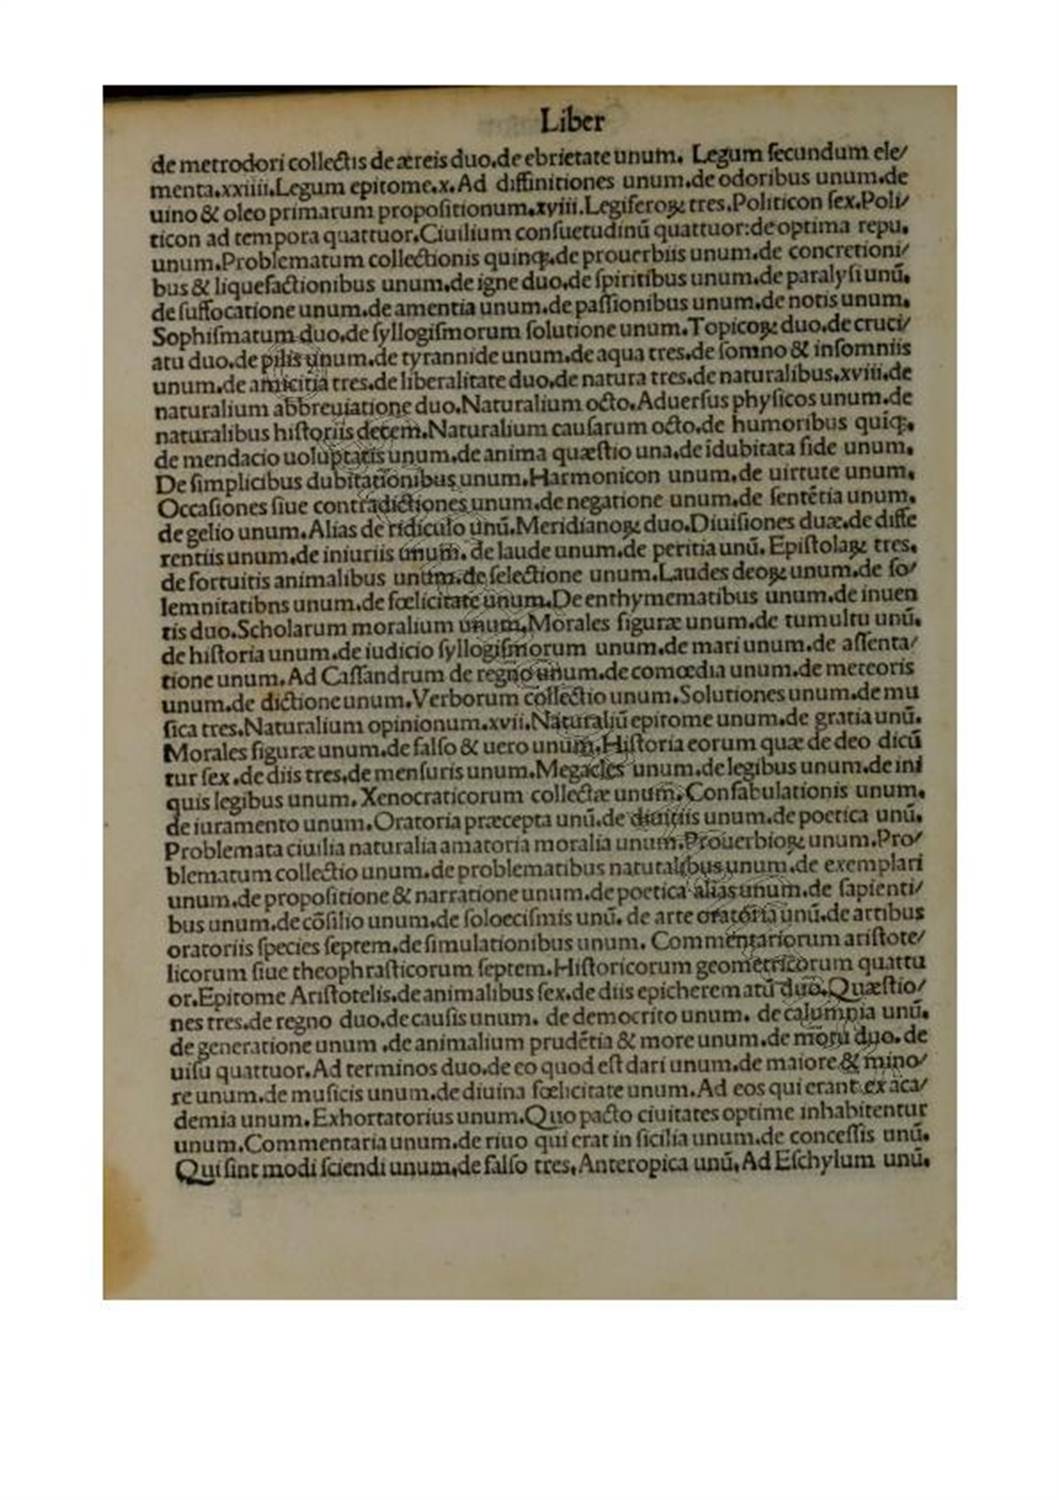 Liber
de metrodori collectis de æreis duo.de ebrietate unum. Legum ſecundum ele/
menta.xxiiii.Legum epitome.x.Ad diffinitiones unum.de odoribus unum.de
uino & oleo primarum propoſitionum.xviii.Legiferoꝝ tres.Politicon ſex.Poli/
ticon ad tempora quattuor.Ciuilium conſuetudinū quattuor:de optima repu.
unum.Problematum collectionis quinqꝫ.de prouerbiis unum.de concretioni/
bus & liquefactionibus unum.de igne duo.de ſpiritibus unum.de paralyſi unū.
de ſuffocatione unum.de amentia unum.de paſſionibus unum.de notis unum.
Sophiſmatum duo.de ſyllogiſmorum ſolutione unum.Topicoꝝ duo.de cruci/
atu duo.de pilis unum.de tyrannide unum.de aqua tres.de ſomno & inſomniis
unum.de amicitia tres.de liberalitate duo.de natura tres.de naturalibus.xviii.de
naturalium abbreuiatione duo.Naturalium octo.Aduerſus phyſicos unum.de
naturalibus hiſtoriis decem.Naturalium cauſarum octo.de humoribus quīqꝫ.
de mendacio uoluptatis unum.de anima quæſtio una.de īdubitata fide unum.
De ſimplicibus dubitationibus unum.Harmonicon unum.de uirtute unum.
Occaſiones ſiue contradictiones unum.de negatione unum.de ſentētia unum.
de gelio unum.Alias de ridiculo unū.Meridianoꝝ duo.Diuiſiones duæ.de diffe
rentiis unum.de iniuriis unum. de laude unum.de peritia unū. Epiſtolaꝝ tres.
de fortuitis animalibus unum.de ſelectione unum.Laudes deoꝝ unum.de ſo/
lemnitatibns unum.de fœlicitate unum.De enthymematibus unum.de inuen
tis duo.Scholarum moralium unum.Morales figuræ unum.de tumultu unū.
de hiſtoria unum.de iudicio ſyllogiſmorum unum.de mari unum.de aſſenta/
tione unum.Ad Caſſandrum de regno unum.de comœdia unum.de meteoris
unum.de dictione unum.Verborum collectio unum.Solutiones unum.de mu
ſica tres.Naturalium opinionum.xvii.Naturaliū epitome unum.de gratia unū.
Morales figuræ unum.de falſo & uero unum.Hiſtoria eorum quæ de deo dicū
tur ſex .de diis tres.de menſuris unum.Megacles unum.de legibus unum.de ini
quis legibus unum.Xenocraticorum collectæ unum.Confabulationis unum.
de iuramento unum.Oratoria præcepta unū.de diuitiis unum.de poetica unū.
Problemata ciuilia naturalia amatoria moralia unum.Prouerbioꝝ unum.Pro/
blematum collectio unum.de problematibus naturalibus unum.de exemplari
unum.de propoſitione & narratione unum.de poetica alias unum.de ſapienti/
bus unum.de cōſilio unum.de ſoloeciſmis unū. de arte oratoria unū.de artibus
oratoriis ſpecies ſeptem.de ſimulationibus unum. Commentariorum ariſtote/
licorum ſiue theophraſticorum ſeptem.Hiſtoricorum geometricorum quattu
or.Epitome Ariſtotelis.de animalibus ſex.de diis epicherematū duo.Quæſtio/
nes tres.de regno duo.de cauſis unum. de democrito unum. de calumnia unū.
de generatione unum .de animalium prudētia & more unum.de motu duo. de
uiſu quattuor.Ad terminos duo.de eo quod eſt dari unum.de maiore & mino/
re unum.de muſicis unum.de diuina fœlicitate unum.Ad eos qui erant ex aca/
demia unum.Exhortatorius unum.Quo pacto ciuitates optime inhabitentur
unum.Commentaria unum.de riuo qui erat in ſicilia unum.de conceſſis unū.
Qui ſint modi ſciendi unum.de falſo tres.Anteropica unū.Ad Eſchylum unū.